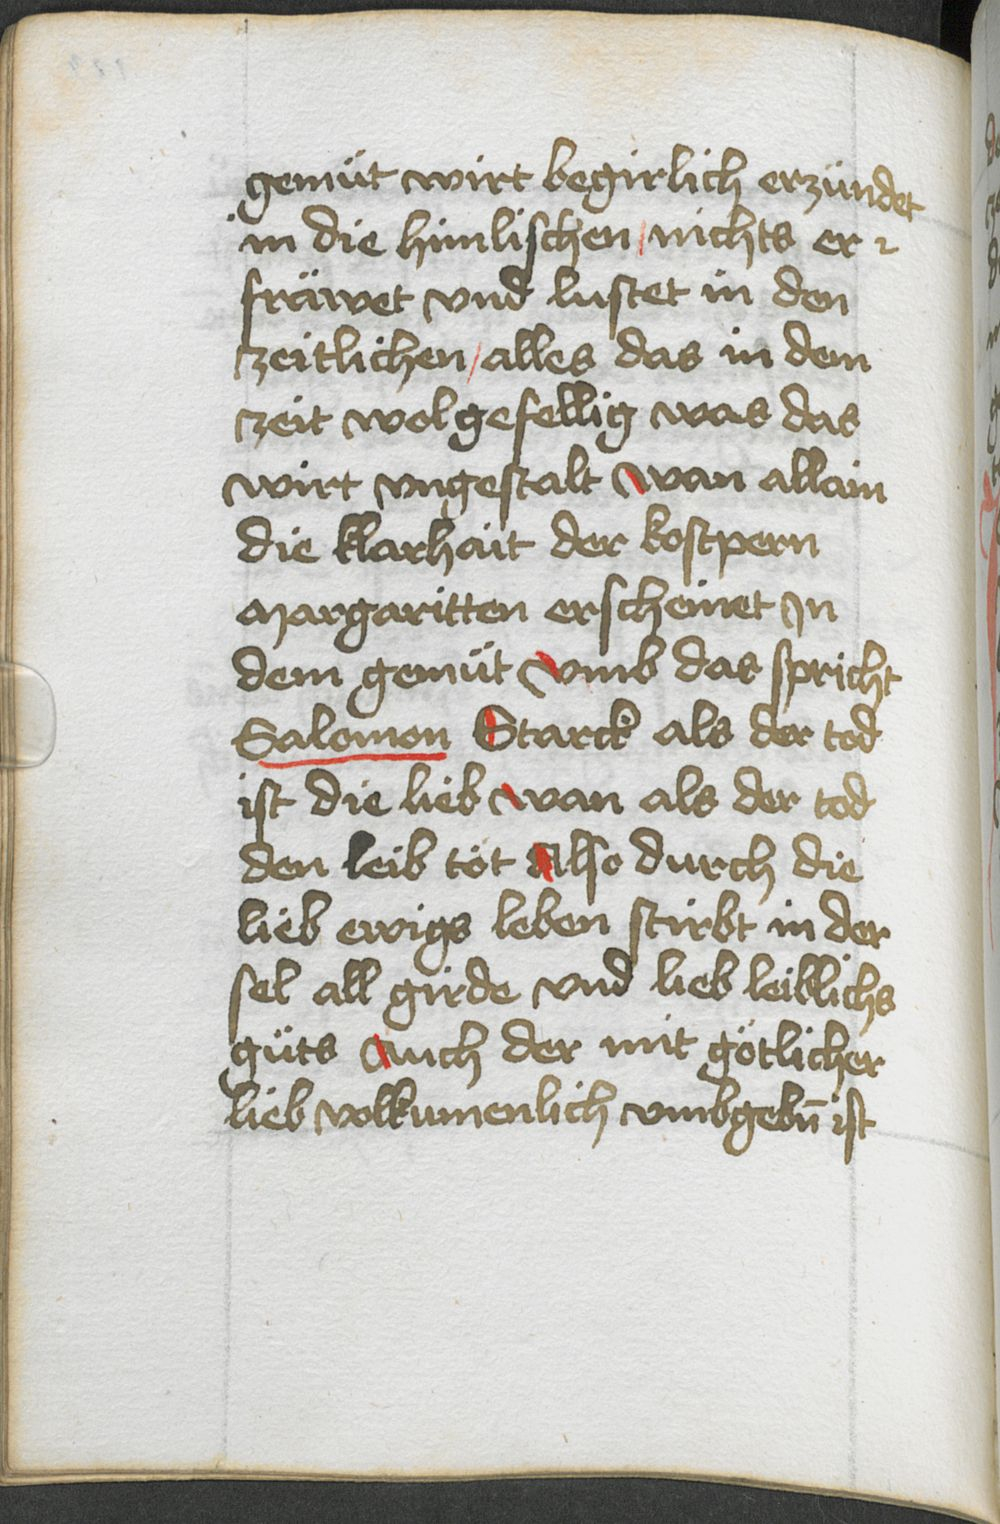 gemüt wirt begirlich erzündet
in die himlischen / nichts er⸗
fräwet vnd lustet in den
zeitlichen / alles das in dem
zeit wolgefellig was das
wirt vngestalt wan allain
die klarhait der kostpern
margaritten erscheinet Jn
dem gemüt vmb das spricht
Salomon Starck als der tod
ist die lieb wan als der tod
den leib töt Also durch die
lieb ewigs leben stirbt in der
sel all girde vnd lieb leiblichs
güts Auch der mit götlicher
lieb volkumenlich vmbgebn̄ ist